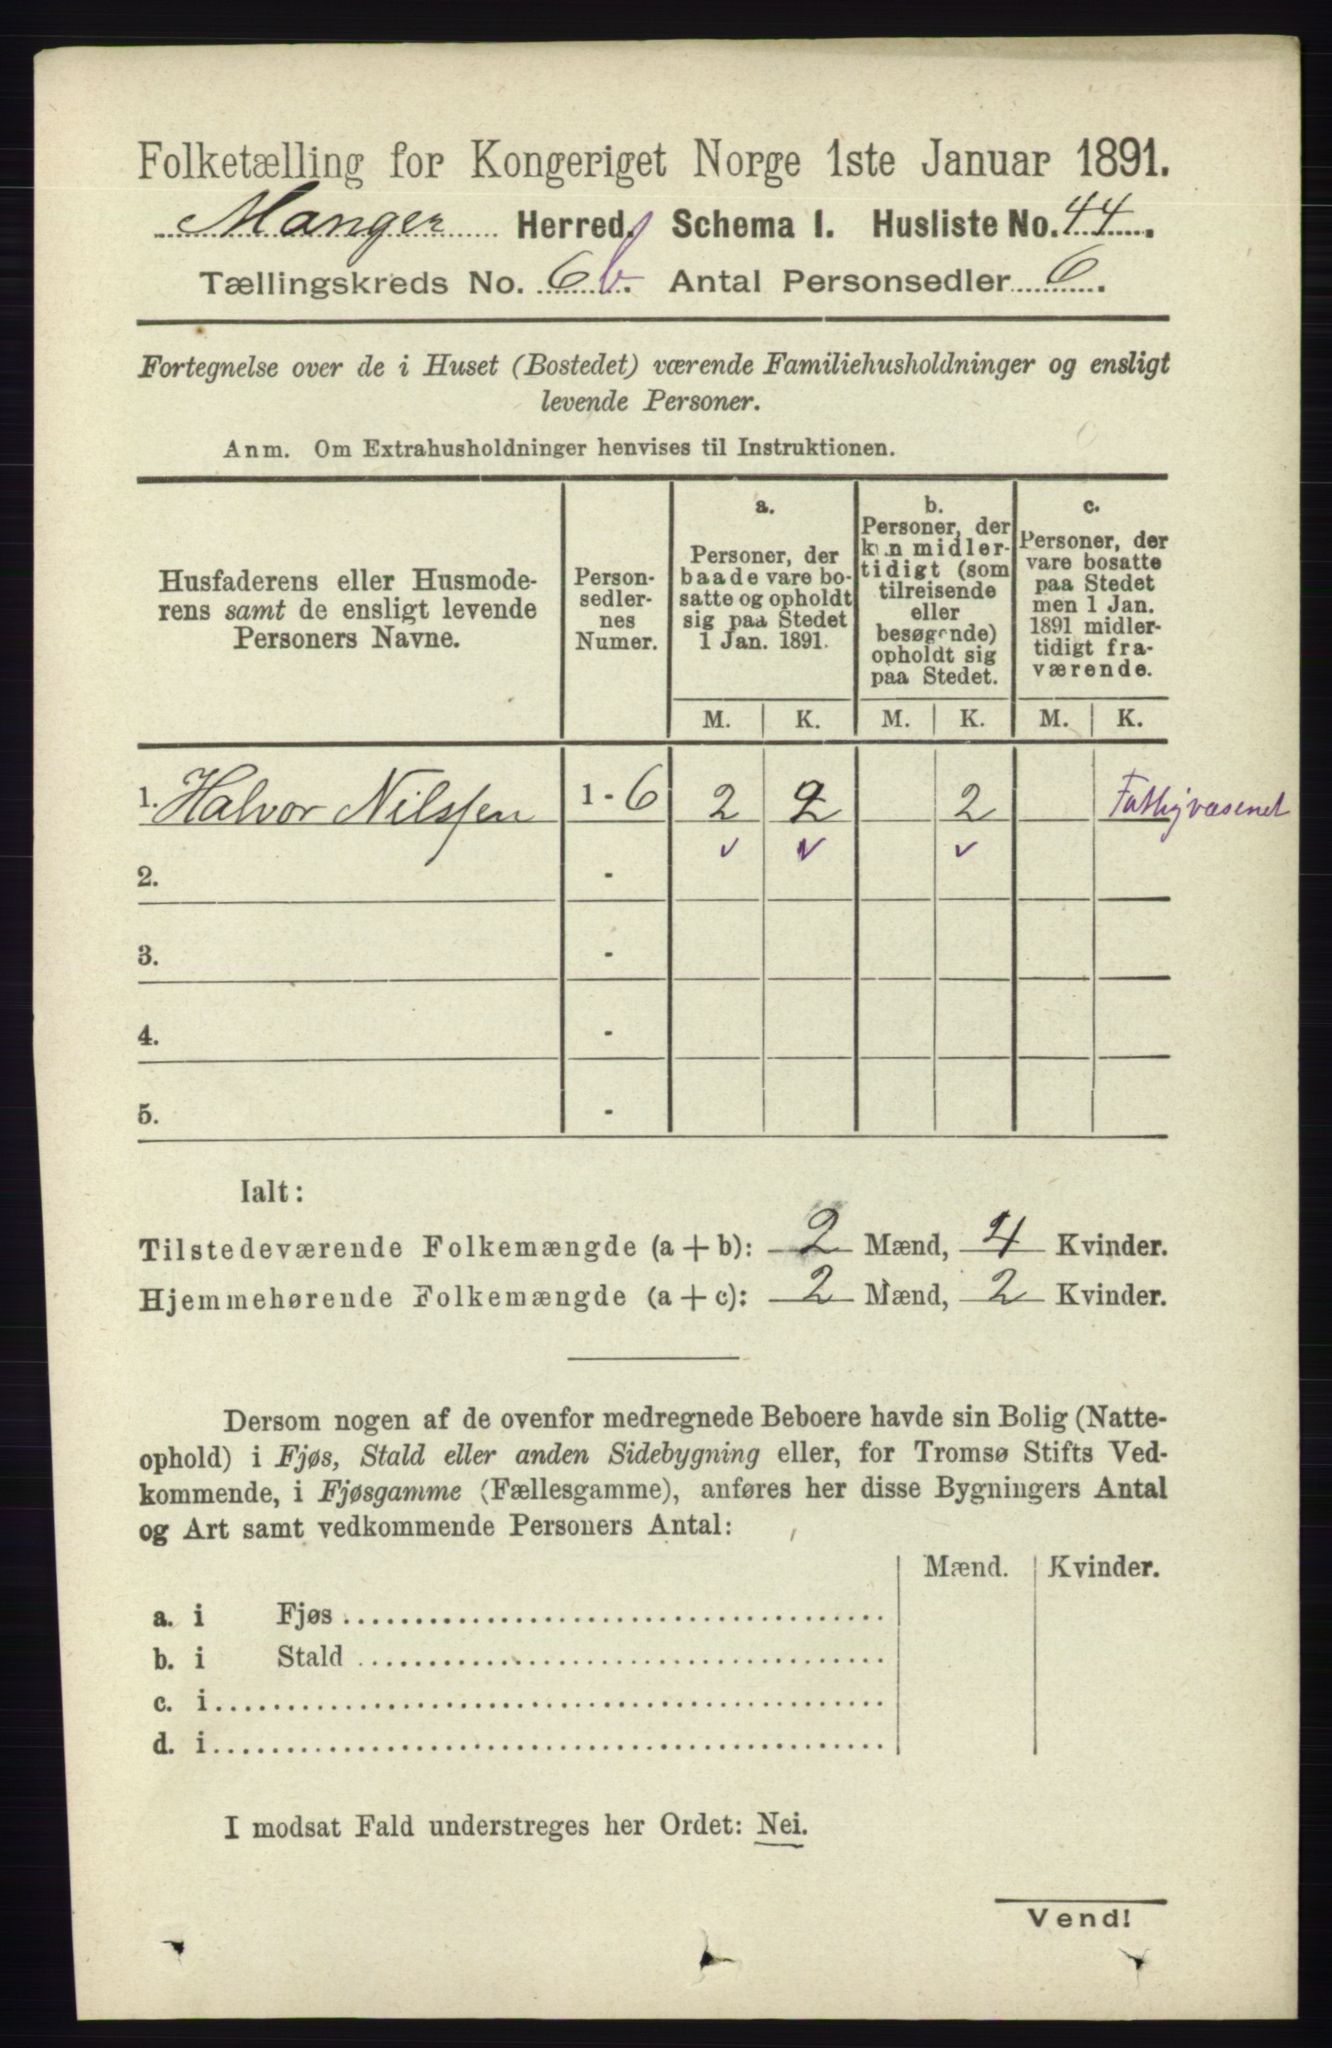 Folketælling for Kongeriget Norge 1ste Januar 1891.
Manger Herred. Schema I. Husliste No. 44.
Tællingskreds No. 6b. Antal Personsedler 6.
Fortegnelse over de i Huset (Bostedet) værende Familiehusholdninger og ensligt
levende Personer.
Anm. Om Extrahusholdninger henvises til Instruktionen.
Husfaderens eller Husmode-
rens samt de ensligt levende
Personers Navne.
Person-
sedler-
nes
Numer.
a.
Personer, der
baade vare bo-
satte og opholdt
sig paa Stedet
1 Jan. 1891.
b.
Personer, der
kun midler-
tidigt (som
tilreisende
eller
besøgende)
opholdt sig
paa Stedet.
c.
Personer, der
vare bosatte
paa Stedet
men 1 Jan.
1891 midler-
tidigt fra-
værende.
M. K. M. K. M. K.
1. Halvor Nilssen 1 - 6 2 2 2 Fattigvæsenet
2. -
3. -
4. -
5. -
Ialt:
Tilstedeværende Folkemængde (a + b): 2 Mænd, 4 Kvinder.
Hjemmehørende Folkemængde (a + c): 2 Mænd, 2 Kvinder.
Dersom nogen af de ovenfor medregnede Beboere havde sin Bolig (Natte-
ophold) i Fjøs, Stald eller anden Sidebygning eller, for Tromsø Stifts Ved-
kommende, i Fjøsgamme (Fællesgamme), anføres her disse Bygningers Antal
og Art samt vedkommende Personers Antal:
Mænd. Kvinder.
a. i Fjøs
b. i Stald
c. i
d. i
I modsat Fald understreges her Ordet: Nei.
Vend!